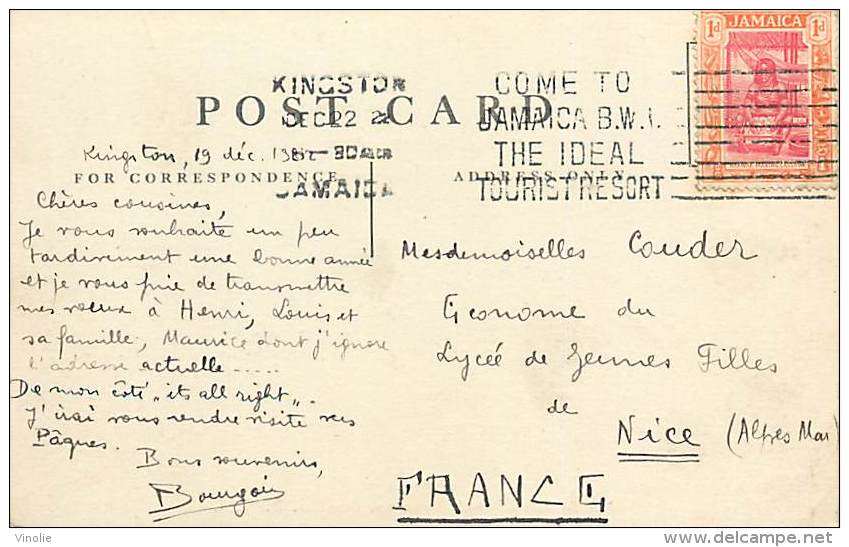 JAMAICA
1d 1d
KINGSTON
DEC 22 22
JAMAICA
COME TO
JAMAICA B.W.I.
THE IDEAL
TOURIST RESORT
POST CARD
FOR CORRESPONDENCE
ADDRESS ONLY
Kingston, 19 déc.
Chères cousines,
Je vous souhaite un peu
tardivement une bonne année
et je vous prie de transmettre
mes voeux à Henri, Louis et
sa famille, Maurice dont j'ignore
l'adresse actuelle .....
De mon côté "its all right".
J'irai vous rendre visite vers
Pâques.
Bons souvenirs,
Bourgois
Mesdemoiselles Couder
Econome du
Lycée de Jeunes Filles
de
Nice (Alpes Mar)
FRANCE
Vinolie
delcampe.net